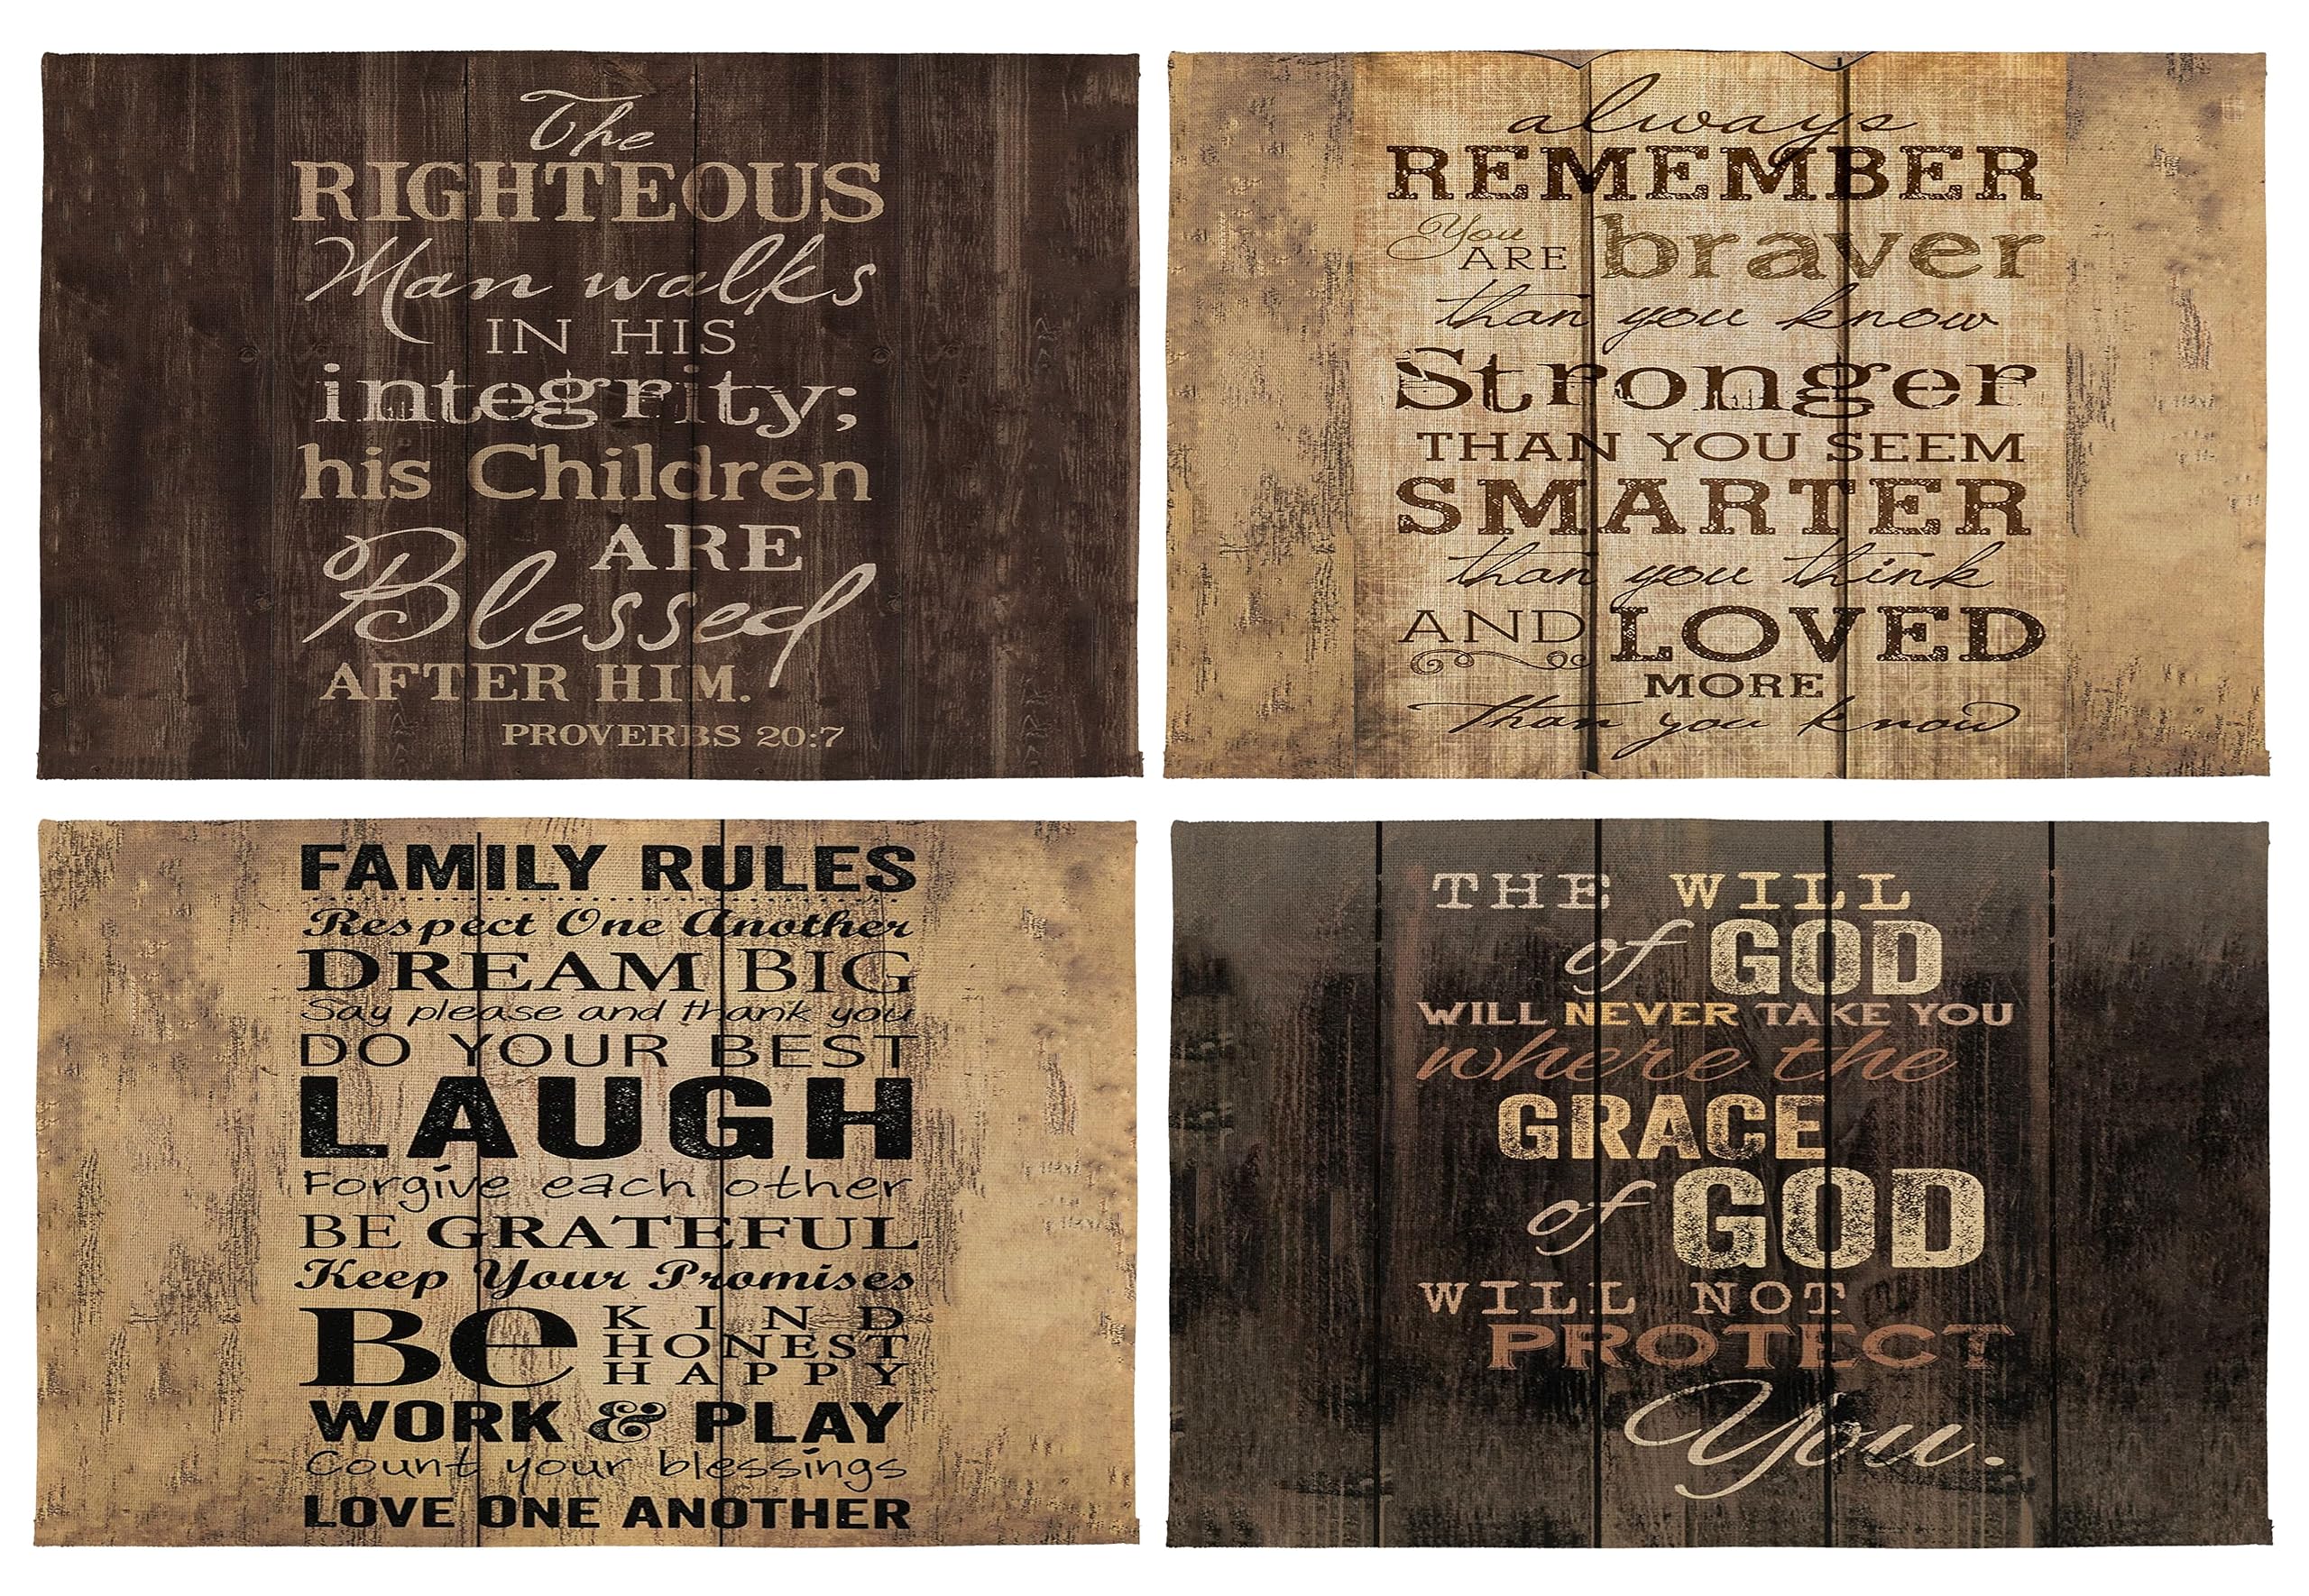 The
RIGHTEOUS
Man walks
IN HIS
integrity;
his Children
ARE
Blessed
AFTER HIM.
PROVERBS 20:7
always
REMEMBER
You
ARE braver
than you know
Stronger
THAN YOU SEEM
SMARTER
than you think
AND LOVED
MORE
than you know
FAMILY RULES
Respect One Another
DREAM BIG
Say please and thank you
DO YOUR BEST
LAUGH
Forgive each other
BE GRATEFUL
Keep Your Promises
Be KIND
HONEST
HAPPY
WORK & PLAY
Count your blessings
LOVE ONE ANOTHER
THE WILL
of GOD
WILL NEVER TAKE YOU
where the
GRACE
of GOD
WILL NOT
PROTECT
You.